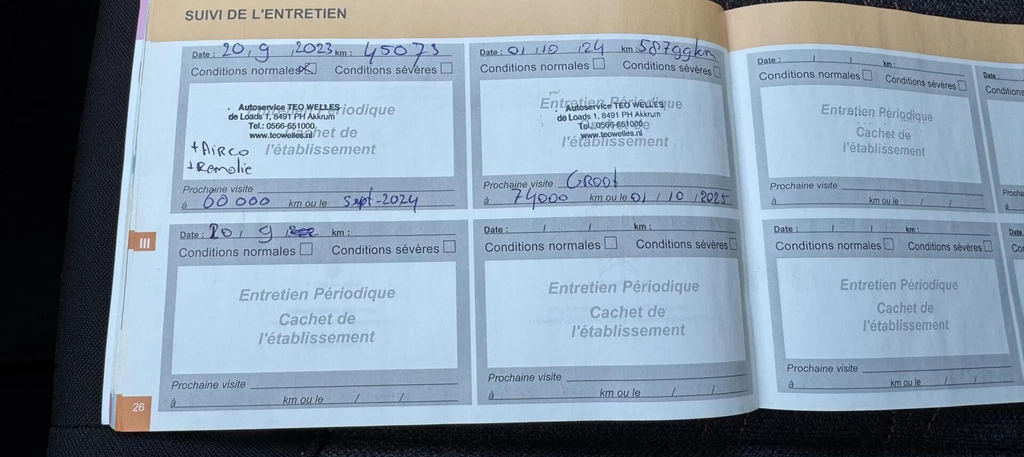 SUIVI DE L'ENTRETIEN
Date : 20 , 9 , 2023 km : 45073
Conditions normales ☒ Conditions sévères ☐
Entretien Périodique
Autoservice TEO WELLES
de Loads 1, 8491 PH Akkrum
Tel.: 0566-651000
www.teowelles.nl
Cachet de
l'établissement
+ AiRCO
+ Remolie
Prochaine visite
à 60 000 km ou le Sept-2024
Date : 01 / 10 / 24 km : 58799km
Conditions normales ☐ Conditions sévères ☐
Entretien Périodique
Autoservice TEO WELLES
de Loads 1, 8491 PH Akkrum
Tel.: 0566-651000
www.teowelles.nl
l'établissement
Prochaine visite GROOt
à 74000 km ou le 01 / 10 / 2025
Date : / / km :
Conditions normales ☐ Conditions sévères ☐
Entretien Périodique
Cachet de
l'établissement
Prochaine visite
à km ou le / /
Date :
Conditions
Procha
à
III
Date : 20 , 9 , km :
Conditions normales ☐ Conditions sévères ☐
Entretien Périodique
Cachet de
l'établissement
Prochaine visite
à km ou le / /
Date : / / km :
Conditions normales ☐ Conditions sévères ☐
Entretien Périodique
Cachet de
l'établissement
Prochaine visite
à km ou le / /
Date : / / km :
Conditions normales ☐ Conditions sévères ☐
Entretien Périodique
Cachet de
l'établissement
Prochaine visite
à km ou le / /
Date
Co
Pro
à
26